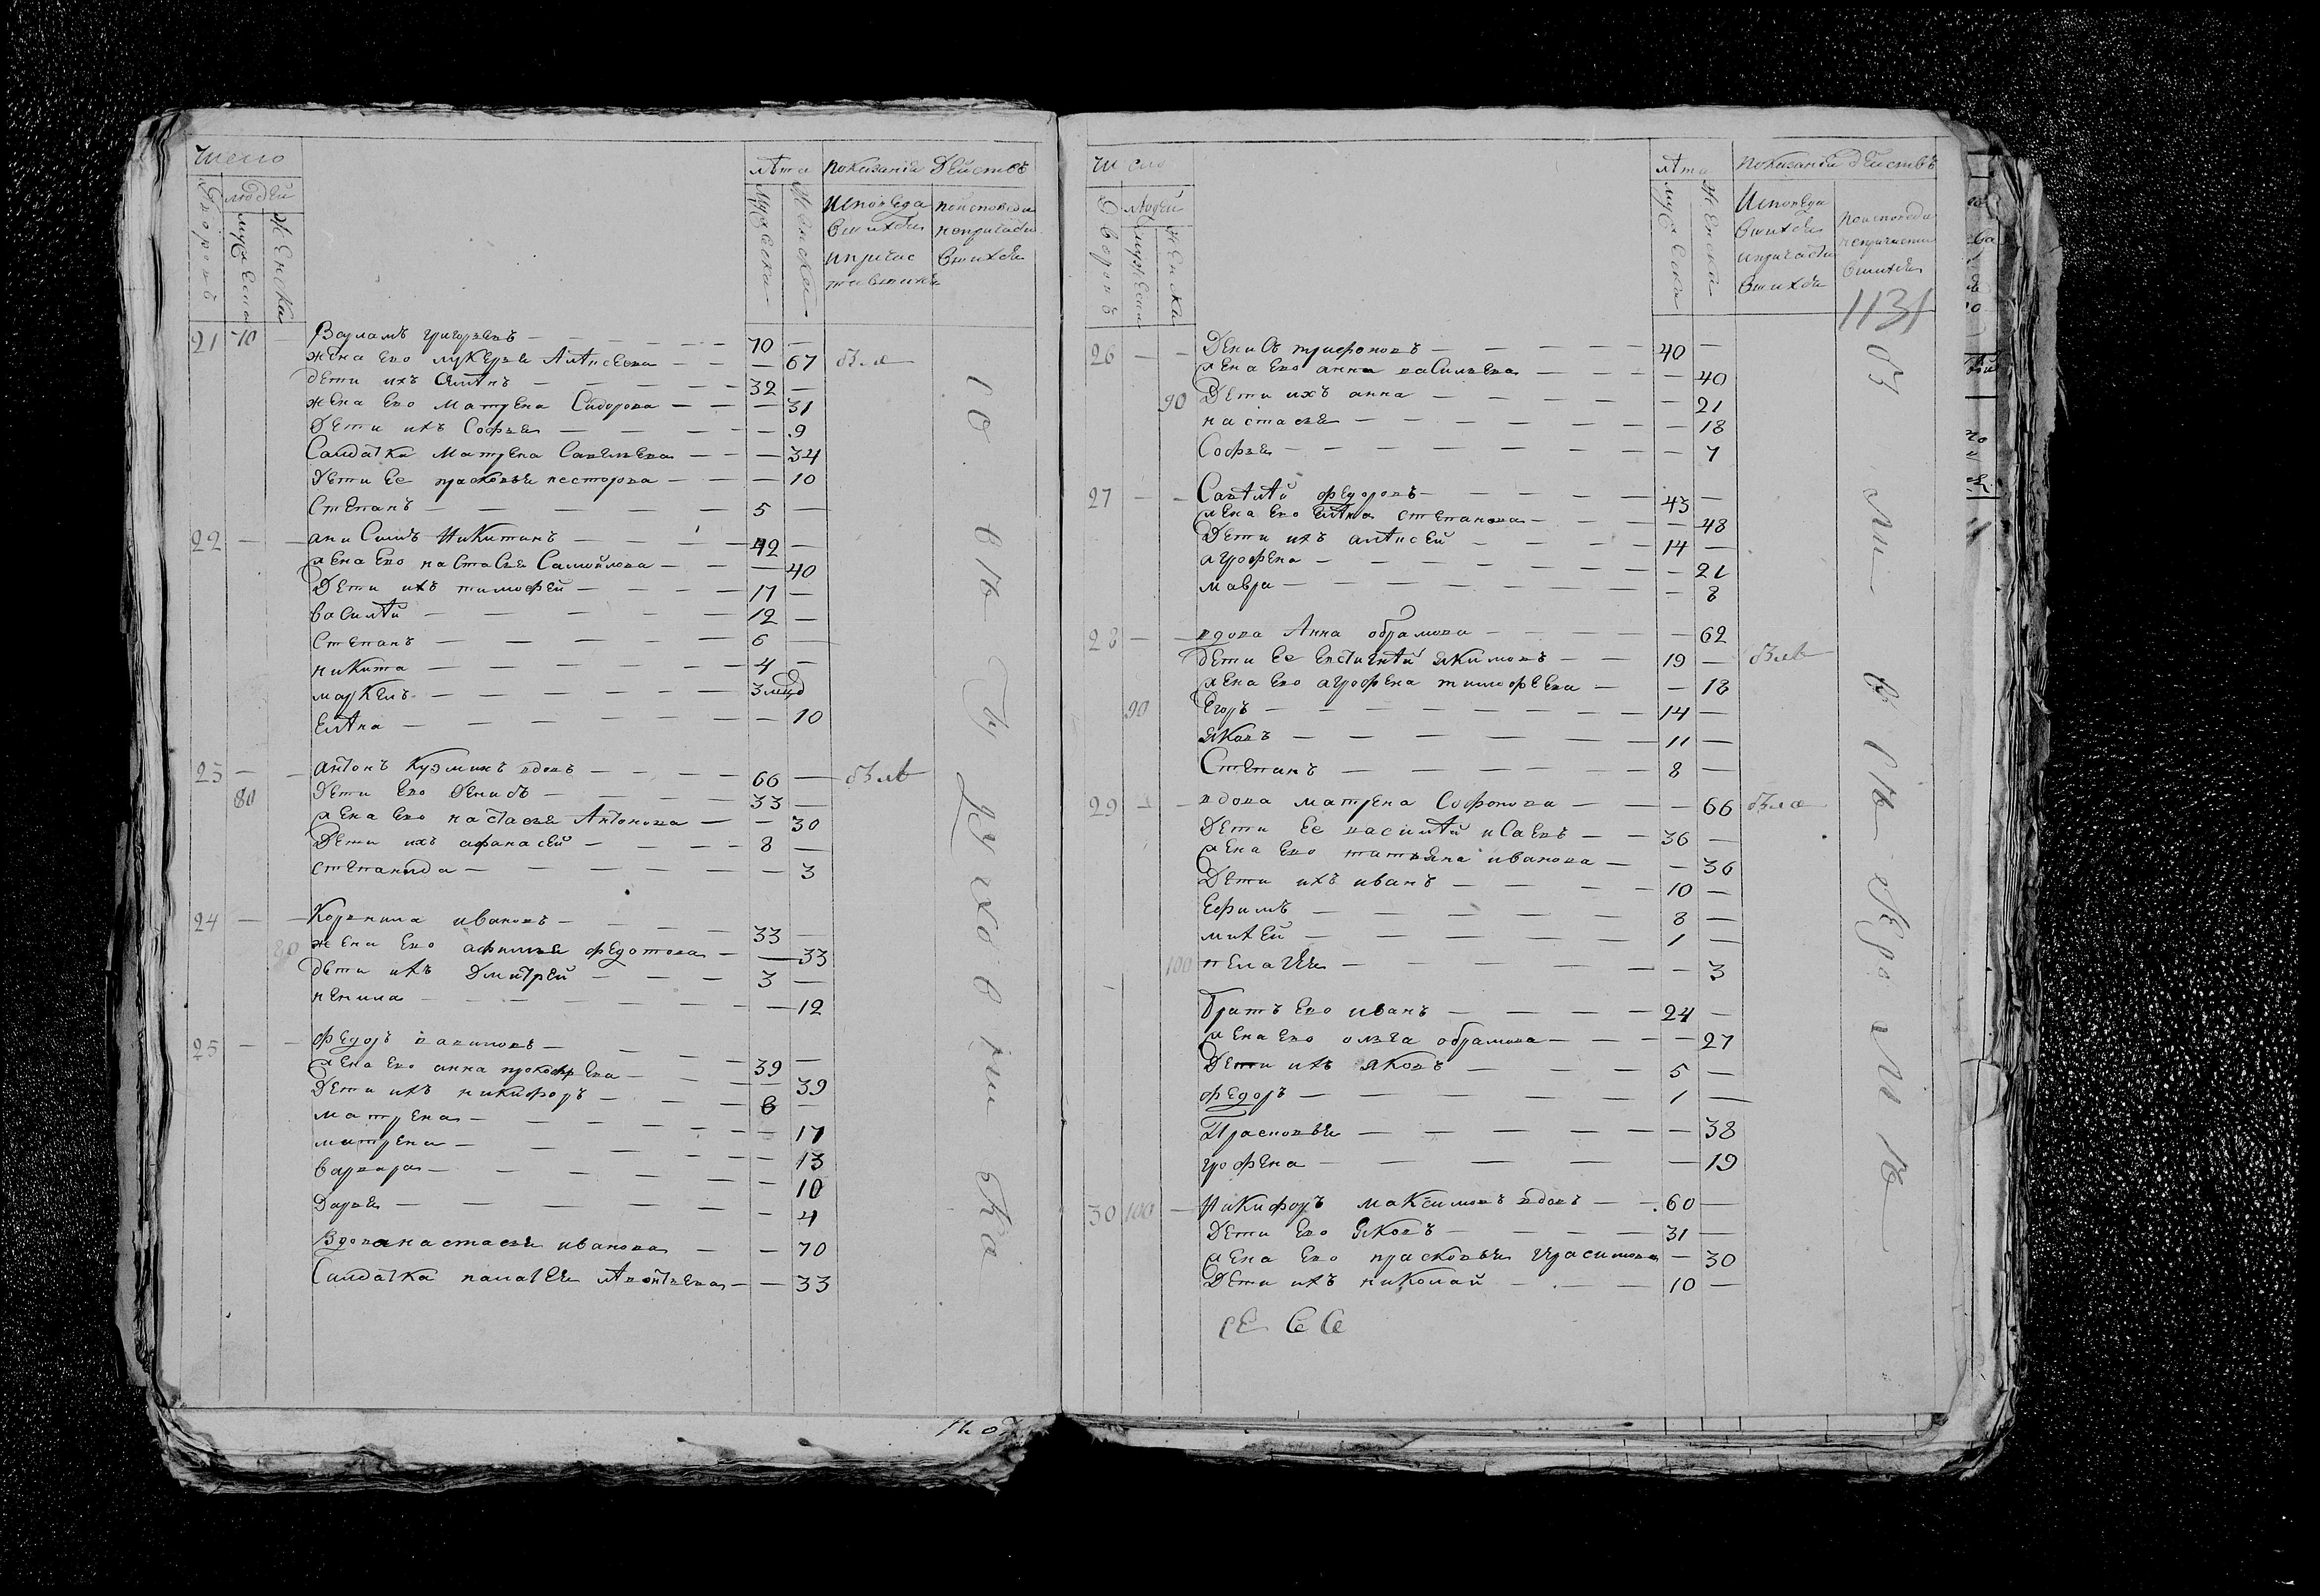 число
лѣта показанїя действъ
дворовъ людей
мужеска женска
мужеска женска
исповеда вшихся и причас тившихъ
по исповеди непричасти вшихся
21 70 Варламъ григорьевъ — 70 —
жена ево лукерья Алѣксеева — — 67 была
дети ихъ — 32 —
жена ево матрена Сидорова — — 31
дети ихъ Софья — — 9
Салдатка матрена Савельева — — 34
дети ее прасковья несторова — — 10
Степанъ — 5 —
22 — — анисимъ никитинъ — 42 —
жена ево настасья Самойлова — — 40
дети ихъ тимофей — 17 —
василѣй — 12 —
Степанъ — 6 —
никита — 4 —
маркелъ — 3 мцд
Елѣна — — 10
23 — — антонъ кузминъ вдовъ — 66 — былъ
80 дети ево денисъ — 33 —
жена ево настасья Антонова — — 30
дети ихъ афанасей — 8 —
степанида — — 3
24 — — Корнила ивановъ — 33 —
80 жена ево афимья федотова — — 33
дети ихъ дмитрей — 3 —
ненила — — 12
25 — — федоръ вавиловъ — 39 —
жена ево анна прокофьева — — 39
дети ихъ никифоръ — 6 —
матрена — — 17
матрена — — 13
варвара — — 10
дарья — — 4
Вдова настасья иванова — — 70
Салдатка палагея лѣонтьева — — 33
духовника
число
лѣта показанїи действъ
дворовъ людей
мужеска женска
мужеска женска
исповеда вшихся и причасти вшихся
по исповеди непричасти вшихся
1131
26 — — денисъ трифоновъ — 40 —
жена ево анна васильева — — 40
90 дети ихъ анна — — 21
настасья — — 18
Софья — — 7
27 — — Савѣлѣй федоровъ — 43 —
жена ево елѣна степанова — — 48
дети ихъ алѣксей — 14 —
агрофена — — 21
мавра — — 8
28 — — вдова Анна обрамова — — 62
дети ее евстигнѣй якимовъ — 19 — былъ
жена ево агрофена тимофеева — — 18
90 Егоръ — 14 —
яковъ — 11 —
Степанъ — 8 —
29 — — вдова матрена Софонова — — 66 была
дети ее василѣй исаевъ — 36 —
жена ево татьяна иванова — — 36
дети ихъ иванъ — 10 —
Ефимъ — 8 —
михей — 1 —
100 пелагея — — 3
братъ ево иванъ — 24 —
жена ево ольга обрамова — — 27
дети ихъ яковъ — 5 —
федоръ — 1 —
Прасковья — — 38
грофена — — 19
30 100 — Никифоръ максимовъ вдовъ — 60 —
дети ево яковъ — 31 —
жена ево прасковья герасимова — 30
дети ихъ николай — 10 —